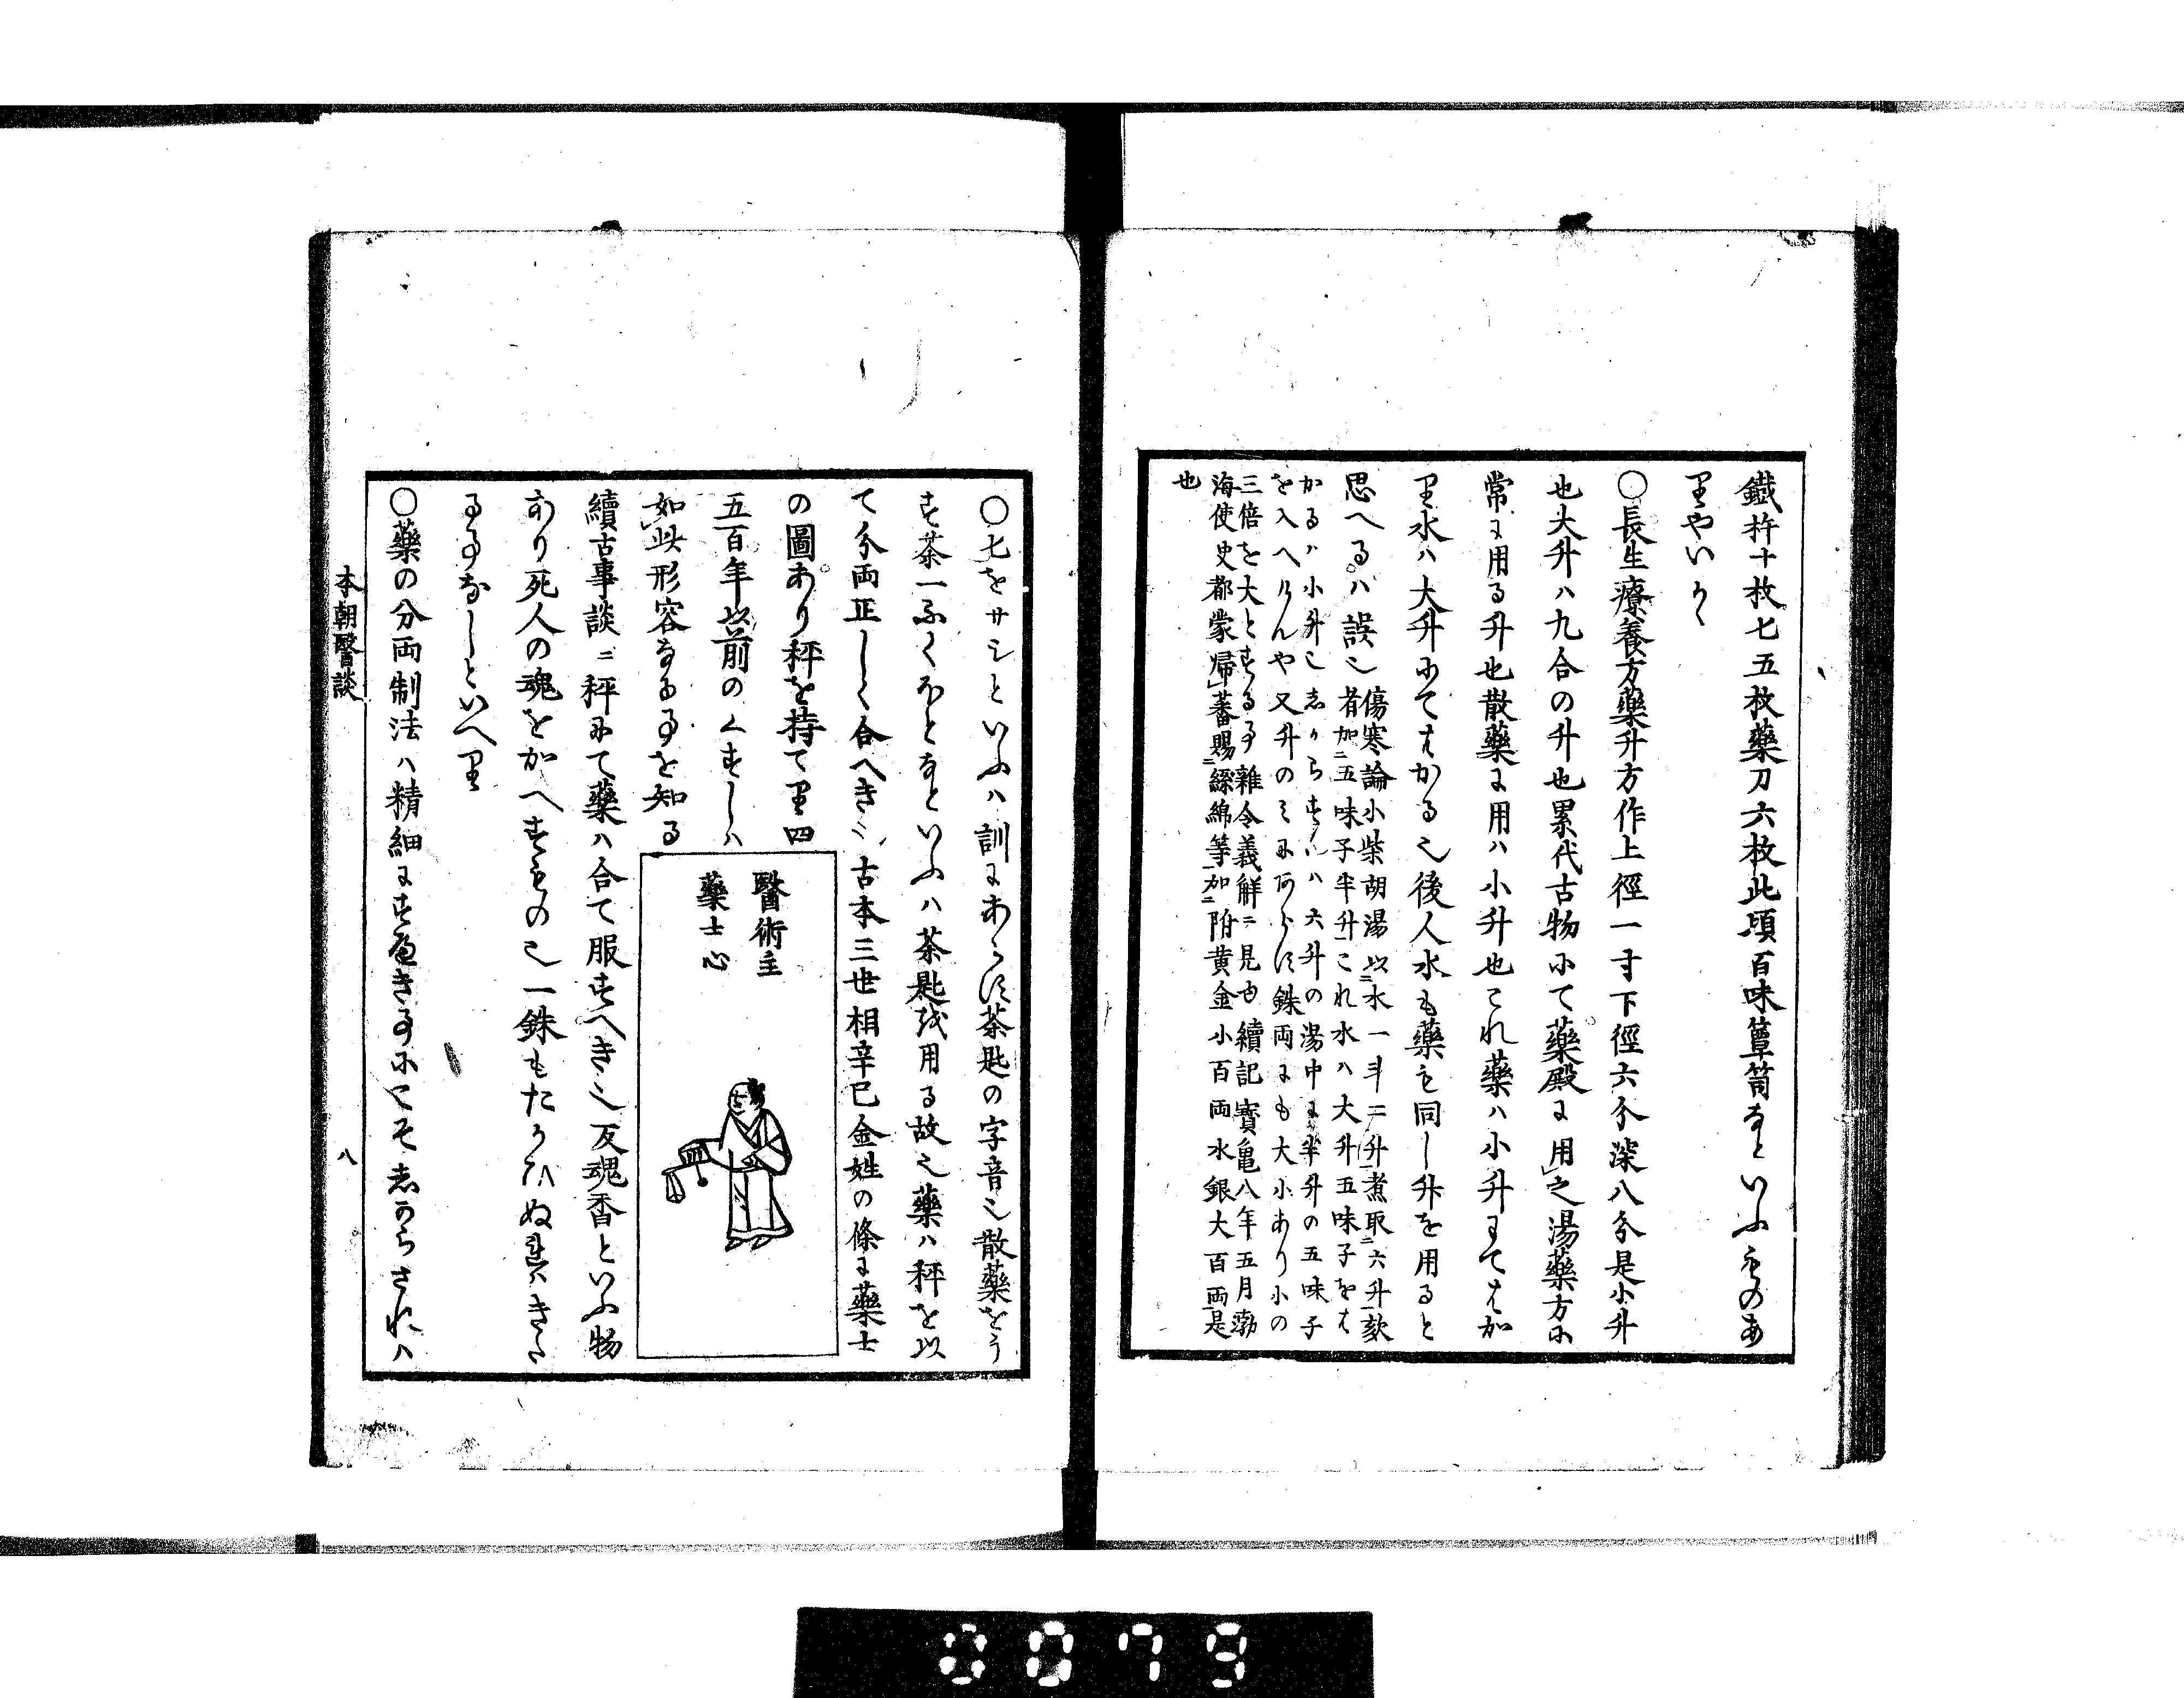 鐵杵十枚七五枚藥刀六枚此頃百味簞笥なといふものあ
りやいかゝ
〇長生療養方藥升方作上徑一寸下徑六分深八分是小升
也大升ハ九合の升也累代古物にて藥殿に用之湯藥方に
常に用る升也散藥に用ハ小升也これ藥ハ小升にてはか
り水ハ大升にてはかる也後人水も藥も同し升を用ると
思へるハ誤也
傷寒論小柴胡湯以水一斗二升煮取六升欬
者加五味子半升これ水ハ大升五味子をは
かるハ小升也しからすハ六升の湯中に半升の五味子
を入へけんや又升のミにあらす銖両にも大小あり小の
三倍を大とする事雜令義解ニ見ゆ續記寳亀八年五月渤
海使史都蒙帰蕃賜絲綿等加附黄金小百両水銀大百両是
也
〇匕をサシといふハ訓にあらす茶匙の字音也散藥をう
す茶一ふくほとなといふハ茶匙を用る故也藥ハ秤を以
て分両正しく合へき也古本三世相辛巳金姓の條に藥士
の圖あり秤を持てり四
五百年以前のくすしハ
如此形容なる事を知る
醫術主
藥士心
續古事談ニ秤にて藥ハ合て服すへき也反魂香といふ物
あり死人の魂をかへすもの也一銖もたかひぬれハきた
る事なしといへり
〇藥の分両制法ハ精細にすへき事にこそしからされハ
本朝醫談
八
0079